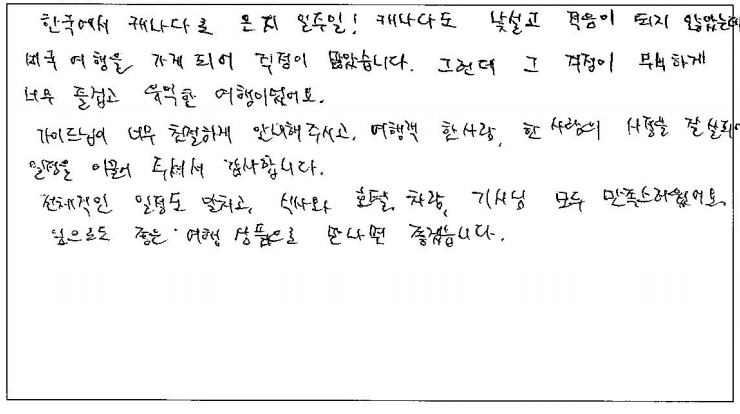 한국에서 캐나다로 온지 일주일! 캐나다도 낯설고 적응이 되지 않았는데
미국 여행을 가게 되어 걱정이 많았습니다. 그런데 그 걱정이 무색하게
너무 즐겁고 유익한 여행이었어요.
가이드님이 너무 친절하게 안내해주시고, 여행객 한사람, 한사람의 사정을 잘 살펴
일정을 이끌어 주셔서 감사합니다.
전체적인 일정도 알차고, 식사와 호텔, 차량, 기사님 모두 만족스러웠어요.
앞으로도 좋은 여행 상품으로 만나면 좋겠습니다.